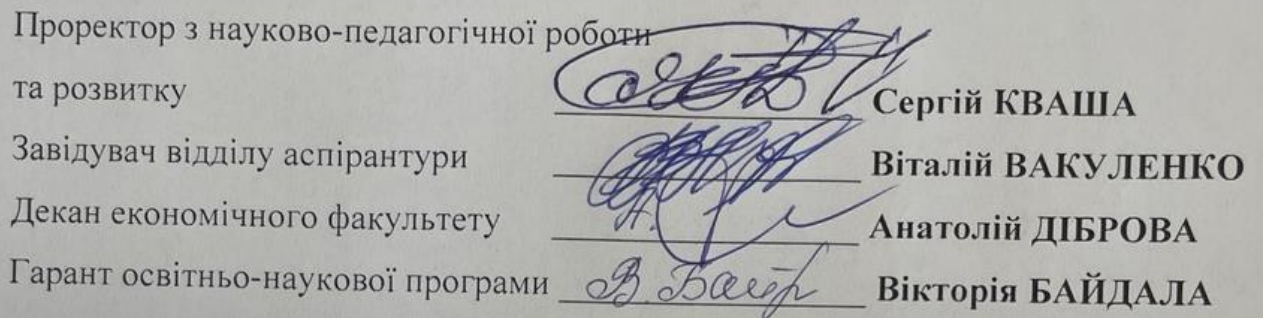 Проректор з науково-педагогічної роботи
та розвитку Сергій КВАША
Завідувач відділу аспірантури Віталій ВАКУЛЕНКО
Декан економічного факультету Анатолій ДІБРОВА
Гарант освітньо-наукової програми Вікторія БАЙДАЛА